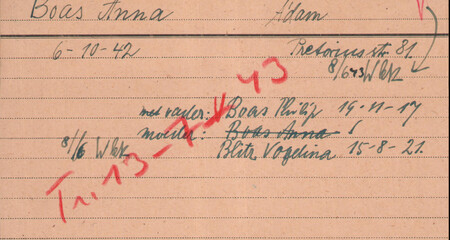 Boas Anna Adam
6-10-42 Pretoriusstr. 81
8/6 43 Wbk
met vader: Boas Philip 19-11-17
moeder: Boas Anna
8/6 Wbk Blitz Vogelina 15-8-21.
Tr. 13-7-43